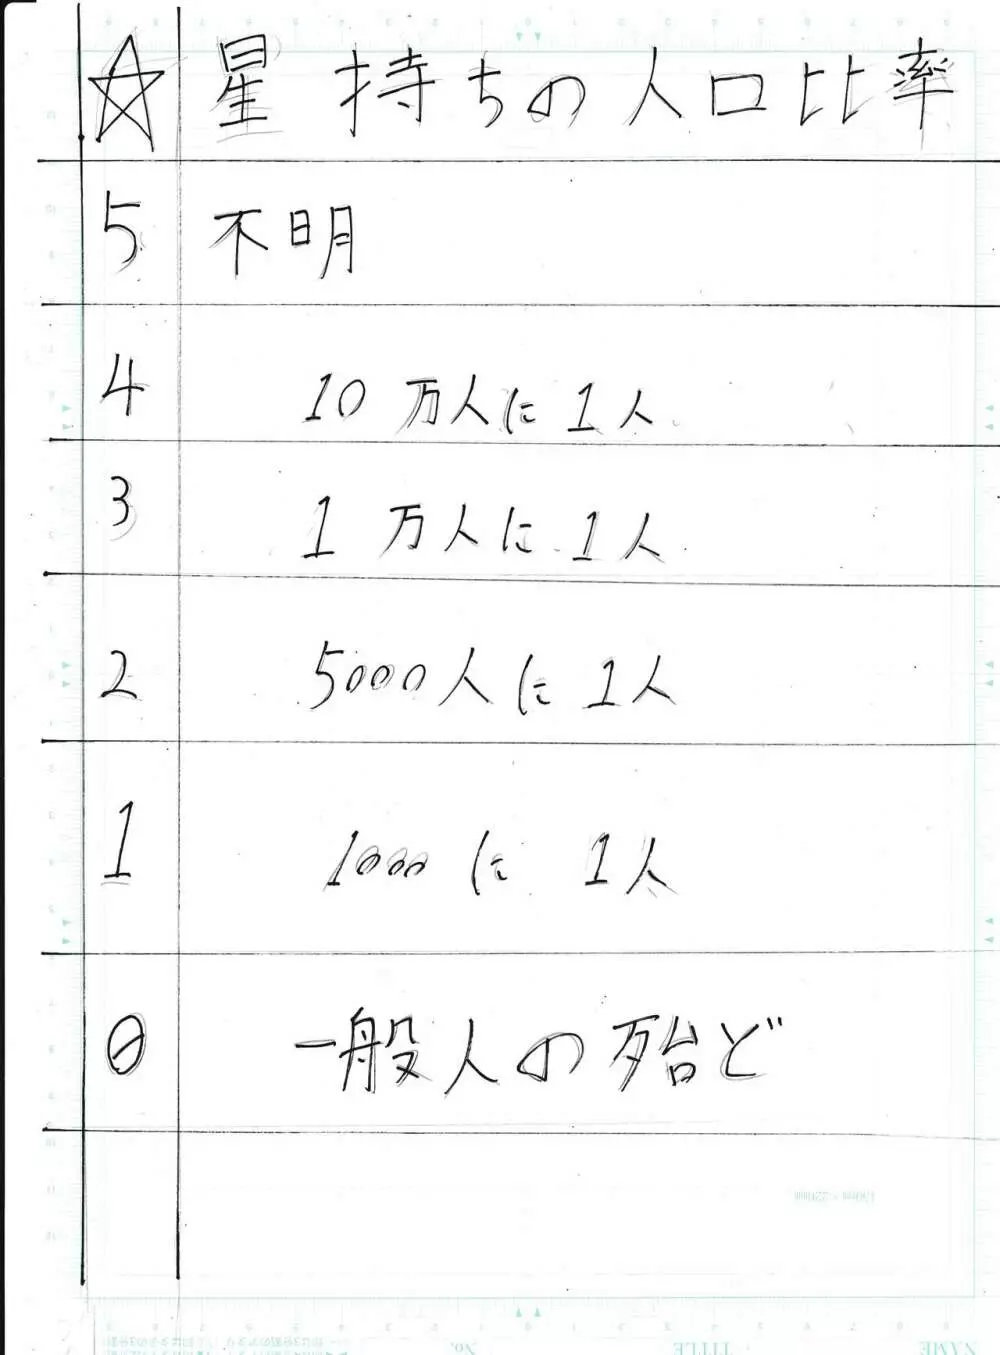 ☆ 星持ちの人口比率
5 不明
4 10万人に1人
3 1万人に1人
2 5000人に1人
1 1000に 1人
0 一般人の殆ど
150mm × 220mm
No. TITLE NAME